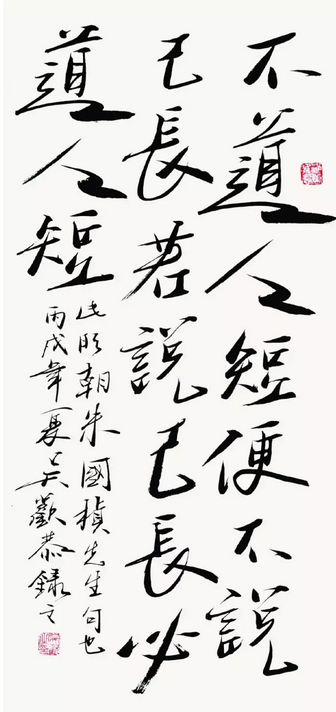 不道人短便不說
已長若說已長必
道人短
此明朝朱國楨先生句也
丙戌年夏吳歡恭錄之